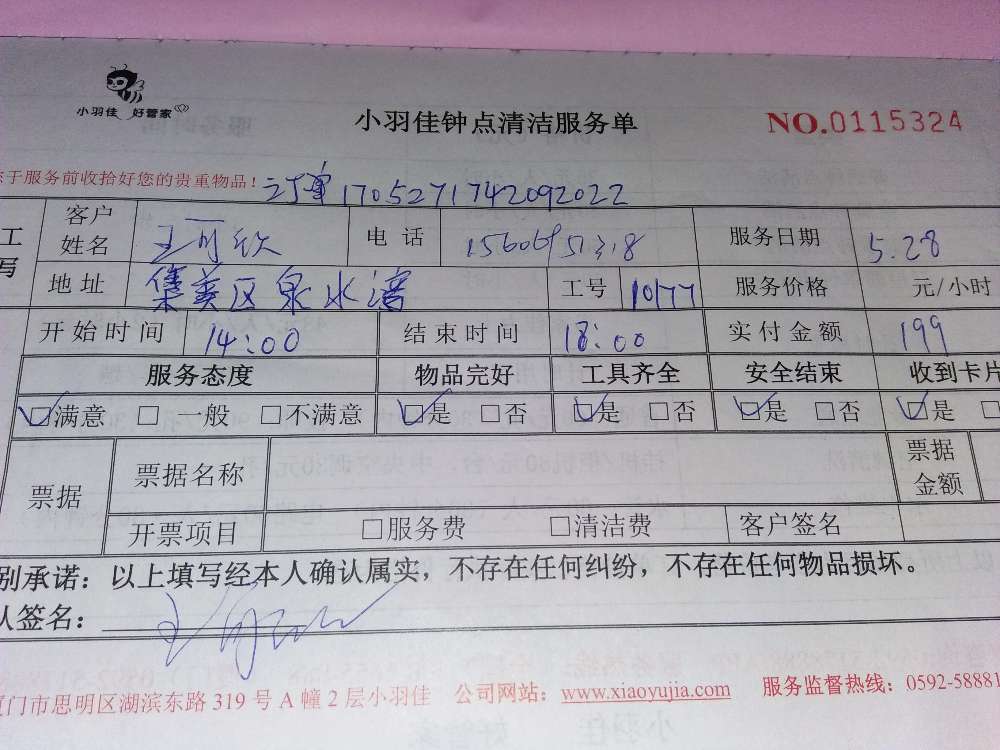 小羽佳 好管家
小羽佳钟点清洁服务单 NO.0115324
于服务前收拾好您的贵重物品! 订单1705271742092022
客户姓名 王可欣 电话 服务日期 5.28
地址 集美区泉水湾 工号 10177 服务价格 元/小时
开始时间 14:00 结束时间 18:00 实付金额 199
服务态度 物品完好 工具齐全 安全结束 收到卡片
☑满意 □一般 □不满意 ☑是 □否 ☑是 □否 ☑是 □否 ☑是 □
票据 票据名称 票据金额
开票项目 □服务费 □清洁费 客户签名
别承诺:以上填写经本人确认属实,不存在任何纠纷,不存在任何物品损坏。
人签名:
厦门市思明区湖滨东路 319 号 A 幢 2 层小羽佳 公司网站:www.xiaoyujia.com 服务监督热线:0592-58881